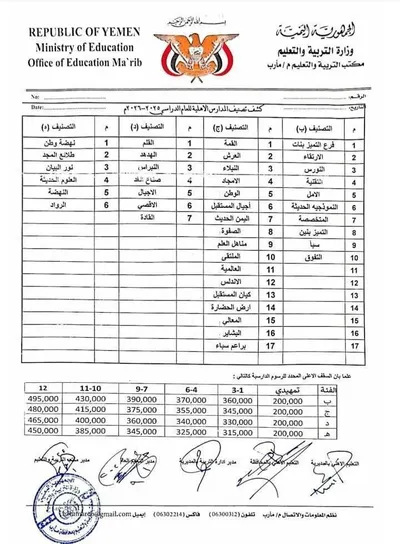 REPUBLIC OF YEMEN
Ministry of Education
Office of Education Ma`rib
الجمهورية اليمنية
وزارة التربية والتعليم
مكتب التربية والتعليم م/ مأرب
No: الرقم:
Date: التاريخ:
كشف تصنيف المدارس الاهلية للعام الدراسي ٢٠٢٥-٢٠٢٦م
م التصنيف (ب) م التصنيف (ج) م التصنيف (د) م التصنيف (د)
1 فرع التميز بنات 1 القمة 1 القلم 1 نهضة وطن
2 الارتقاء 2 العرش 2 الهدهد 2 طلايع المجد
3 النورس 3 النبلاء 3 النبراس 3 نور البيان
4 التقنية 4 الامجاد 4 صناع الغد 4 العلوم الحديثة
5 الامل 5 الوطن 5 الاجيال 5 النهضة
6 النموذجيه الحديثة 6 أجيال المستقبل 6 الاقصى 6 الرواد
7 المتخصصة 7 اليمن الحديث 7 القادة
8 التميز بنين 8 الصفوة
9 سبأ 9 مناهل العلم
10 التفوق 10 الملتقى
11 العالمية
12 الاندلس
13 كيان المستقبل
14 ارض الحضارة
15 المعالي
16 البشاير
17 براعم سباء
علما بان السقف الاعلى المحدد للرسوم الدارسية كالتالي:
الفئة تمهيدي 3-1 6-4 9-7 11-10 12
ب 200,000 360,000 370,000 390,000 430,000 495,000
ج 200,000 345,000 355,000 375,000 415,000 480,000
د 200,000 330,000 340,000 360,000 400,000 465,000
هـ 200,000 315,000 325,000 345,000 385,000 450,000
التعليم الاهلي بالمديرية
مدير ادارة التربية بالمديرية
نظم المعلومات والاتصال م/ مأرب تلفون (06300312) فاكس (06302214) إيميل